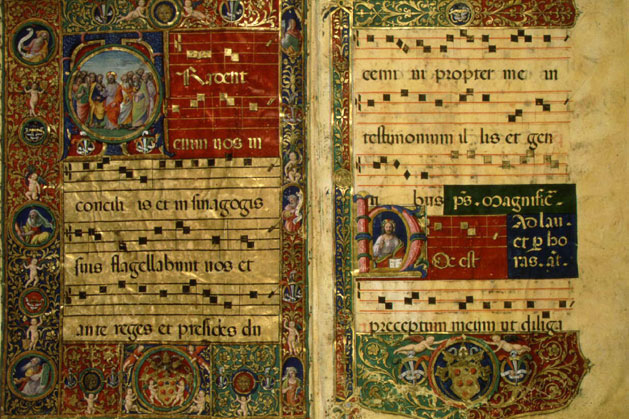 Tradent
enim uos in
concili is et in sinagogis
suis flagellabunt uos et
ante reges et presides du
cemi ni propter me in
testimonium il lis et gen
ti bus pẜ. Magnific̄.
Ad lau
et ꝑ ho
ras. añ.
Hoc est
preceptum meum ut diliga